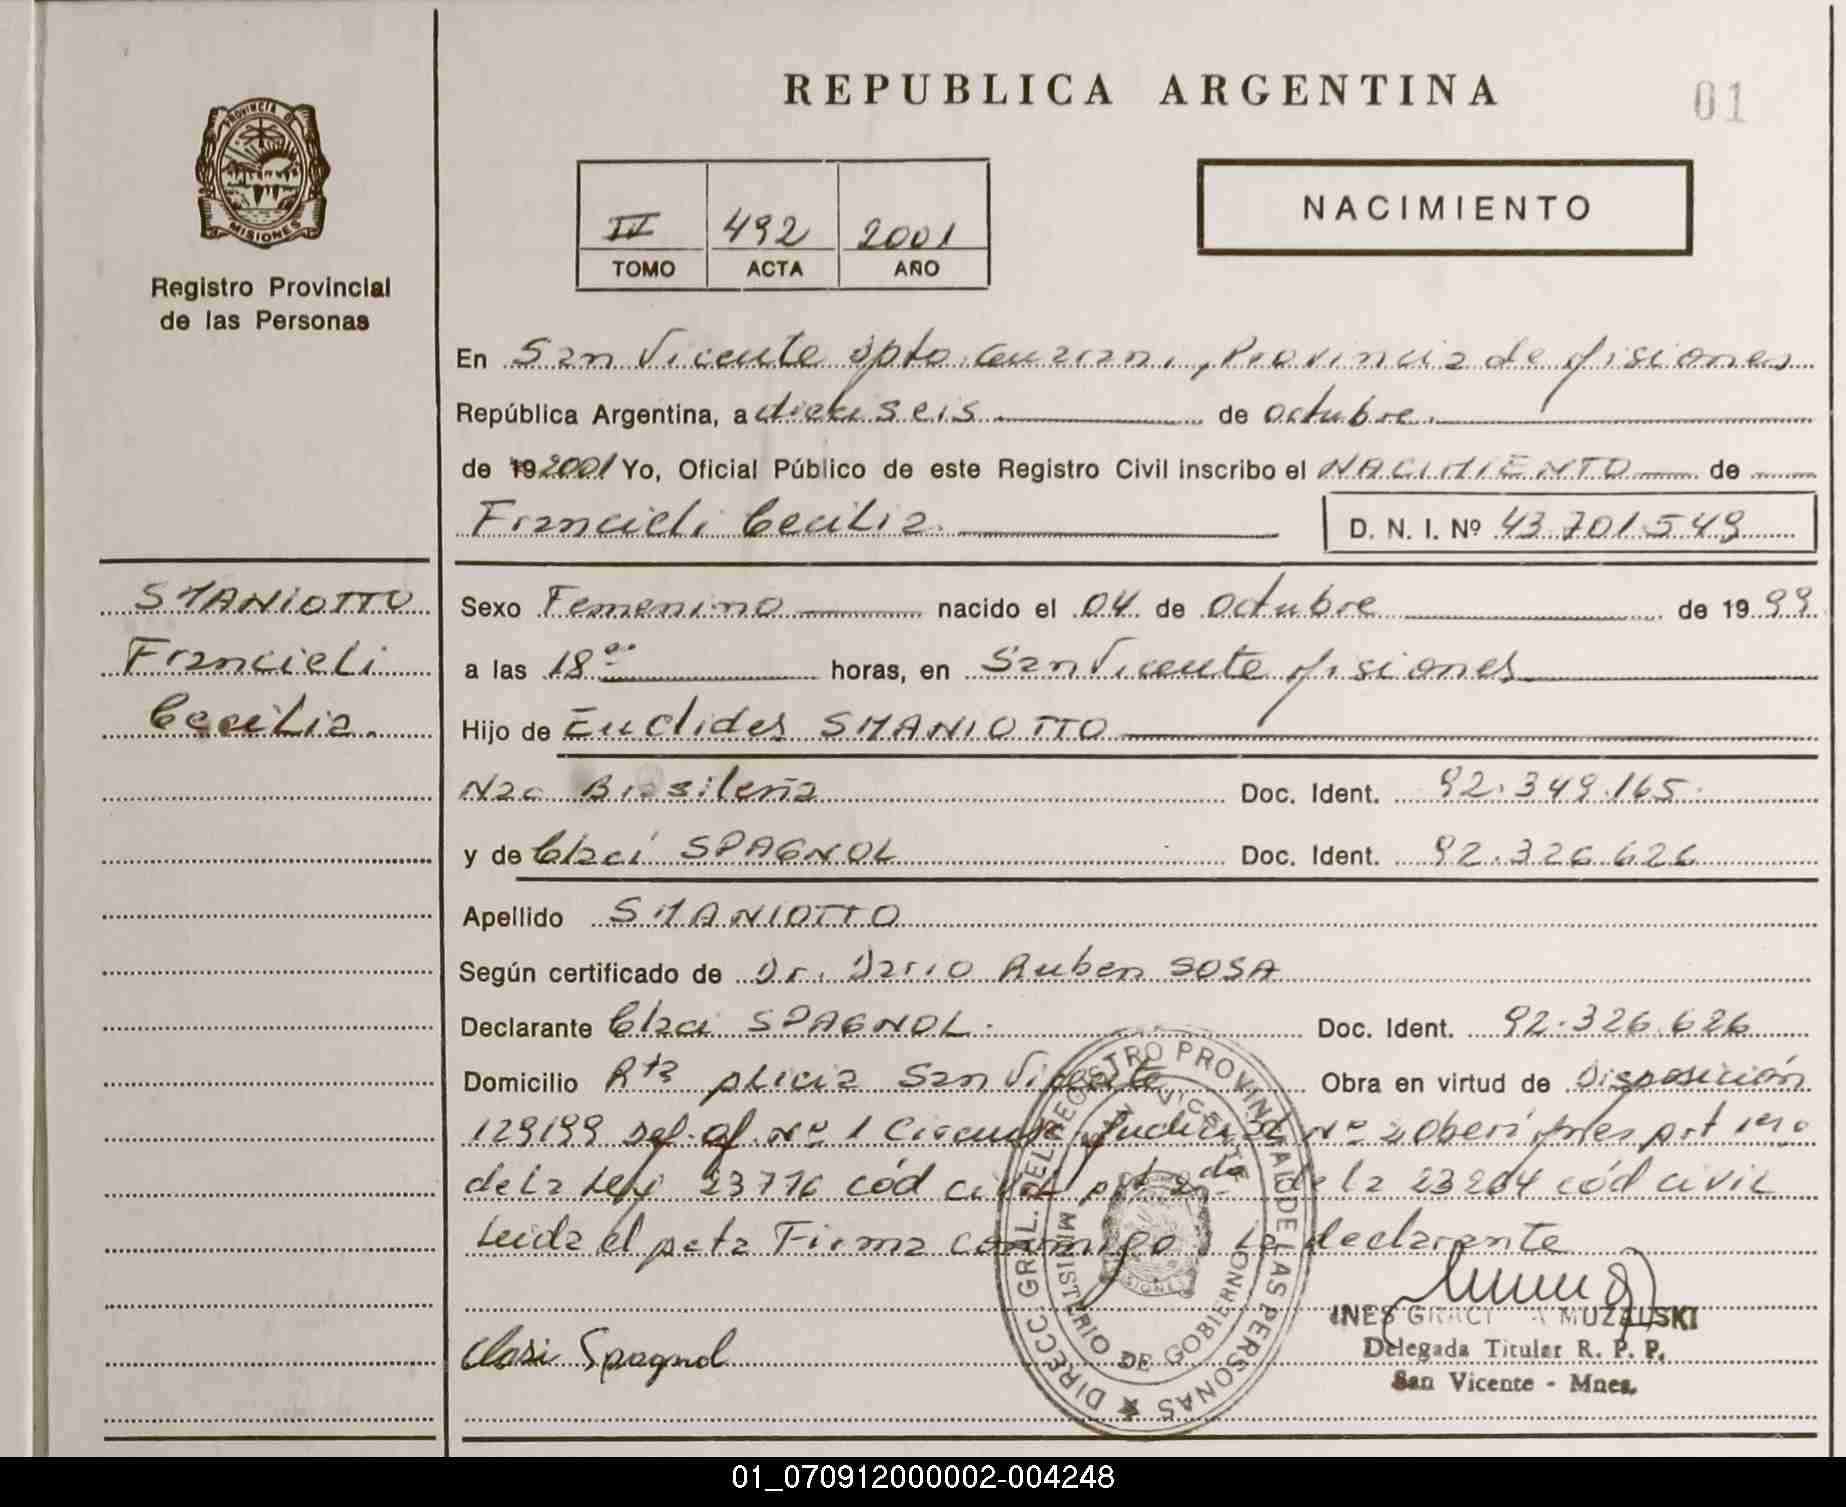 REPUBLICA ARGENTINA
01
PROVINCIA DE
MISIONES
Registro Provincial
de las Personas
IV 492 2001
TOMO ACTA AÑO
NACIMIENTO
En San Vicente Dpto Guarani, Provincia de Misiones
República Argentina, a dieciseis de octubre
de 19 2001 Yo, Oficial Público de este Registro Civil inscribo el NACIMIENTO de
Francieli Cecilia.
D. N. I. Nº 43.701.549
SMANIOTTO
Francieli
Cecilia.
Sexo Femenino nacido el 04 de Octubre de 1999
a las 18 00 horas, en San Vicente Misiones
Hijo de Euclides SMANIOTTO
Nac Brasileña Doc. Ident. 92.349.165
y de Claci SPAGNOL Doc. Ident. 92.326.626
Apellido SMANIOTTO
Según certificado de Dr. Dario Ruben SOSA
Declarante Claci SPAGNOL. Doc. Ident. 92.326.626
Domicilio Rta San Vicente Obra en virtud de Disposición
129199 def. of. Nº 1 Judicial Nº 2 Oberá Mnes art 1ro
de la Ley 23776 cód civil art 2do de la 23264 cód civil
Leida el acta Firma conmigo la declarante
DIRECC. GRAL. DEL REGISTRO PROVINCIAL DE LAS PERSONAS
MINISTERIO DE GOBIERNO
VICENTE
Spagnol
INES MUZALSKI
Delegada Titular R. P. P.
San Vicente - Mnes.
01_070912000002-004248